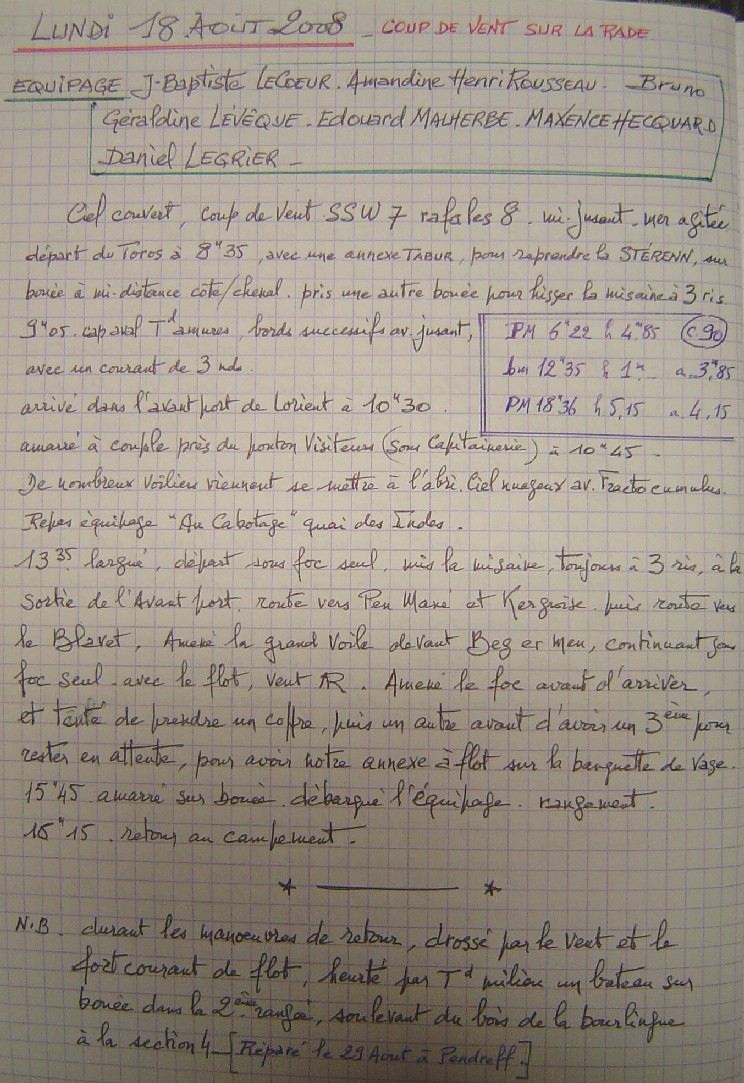 LUNDI 18 AOÛT 2008 _ COUP DE VENT SUR LA RADE
EQUIPAGE J-Baptiste LECOEUR. Amandine Henri ROUSSEAU. _ Bruno
Géraldine LÉVÊQUE - Edouard MALHERBE - MAXENCE HECQUARD
Daniel LEGRIER _
Ciel couvert, coup de vent SSW 7 rafales 8 . mi-jusant - mer agitée
départ du Toros à 8H35, avec une annexe TABUR, pour reprendre le STÉRENN, sur
bouée à mi-distance côte/chenal. pris une autre bouée pour hisser la misaine à 3 ris
9H05. cap aval Td amures, bords successifs av. jusant,
avec un courant de 3 nds.
PM 6H22 h 4m85 (C.90)
bm 12H35 h 1m_ a. 3m,85
PM 18H36 h 5,15 a. 4,15
arrivé dans l'avant port de Lorient à 10H30.
amarré à couple près du ponton Visiteurs (Sous Capitainerie) à 10H45 _
De nombreux voiliers viennent se mettre à l'abri. Ciel nuageux av. Fractocumulus.
Repas équipage "Au Cabotage" quai des Indes.
13 35 largué, départ sous foc seul, mis la misaine, toujours à 3 ris, à la
Sortie de l'Avant port. route vers Pen Mané et Kerguoise. puis route vers
le Blavet, Amené la grand voile devant Beg er men, continuant sous
foc seul. avec le flot, vent AR. Amené le foc avant d'arriver,
et tenté de prendre un coffre, puis un autre avant d'avoir un 3ème pour
rester en attente, pour avoir notre annexe à flot sur la banquette de vase.
15H45 amarré sur bouée. débarqué l'équipage. rangement.
16H15. retour au campement _
* ——— *
N.B. durant les manoeuvres de retour, drossé par le vent et le
fort courant de flot, heurté par Td milieu un bateau sur
bouée dans la 2ème rangée, soulevant du bois de la bourlingue
à la section 4_ [Réparé le 29 Aout à Pendreff.]